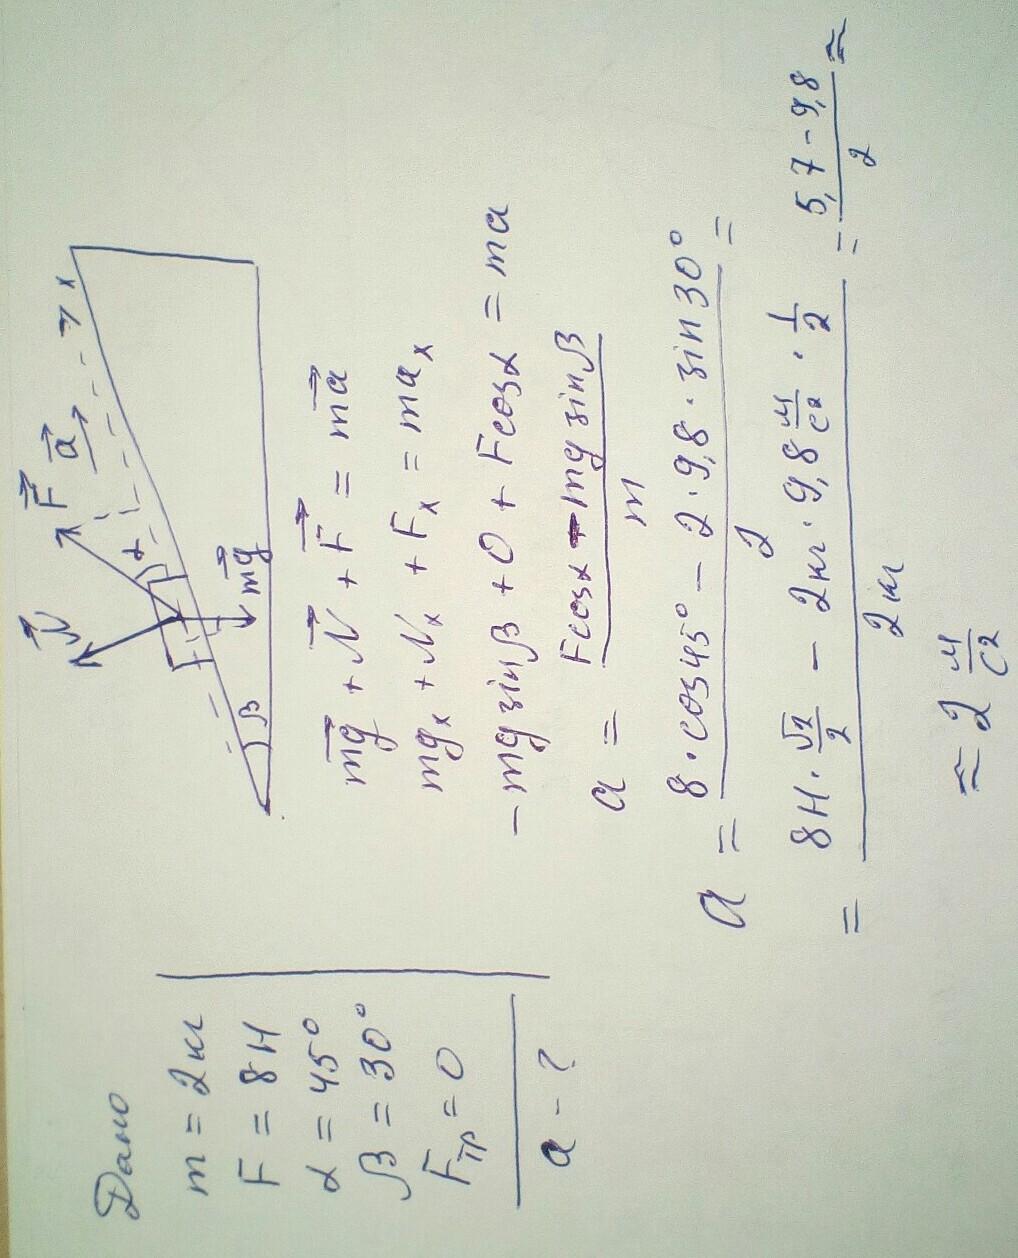 Дано
m = 2кг
F = 8Н
α = 45°
β = 30°
Fтр = 0
a - ?
N⃗
F⃗
a⃗
x
α
mg⃗
β
mg⃗ + N⃗ + F⃗ = ma⃗
mgₓ + Nₓ + Fₓ = maₓ
- mg sinβ + 0 + Fcosα = ma
a = (Fcosα - mg sinβ) / m
a = (8 · cos45° - 2 · 9,8 · sin30°) / 2 =
= (8Н · √2/2 - 2кг · 9,8 м/с² · 1/2) / 2кг = (5,7 - 9,8) / 2 ≈
≈ 2 м/с²